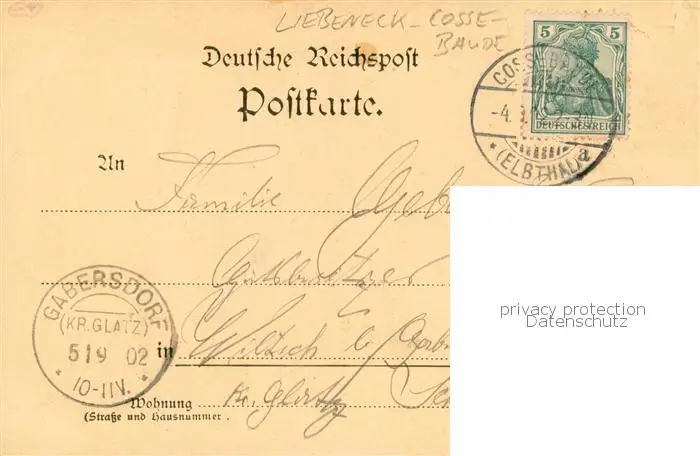 LIEBENECK - COSSE-
BAUDE
Deutsche Reichspost
Postkarte.
5 5
DEUTSCHES REICH
COSSEBAUDE
-4.
a
* (ELBTHAL) *
An Familie
Gutsbesitzer
in Wiltsch b
Kr. Glatz
GABERSDORF
(KR. GLATZ)
5/9 02
* 10-11V. *
Wohnung
(Straße und Hausnummer.
privacy protection
Datenschutz